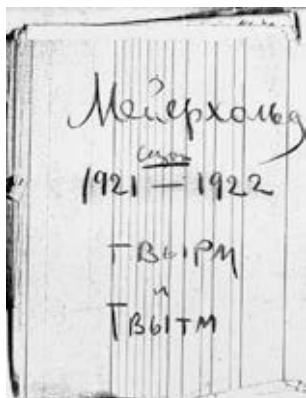 Мейерхольд
сезон
1921 — 1922
ГВЫРМ
и
ГВЫТМ